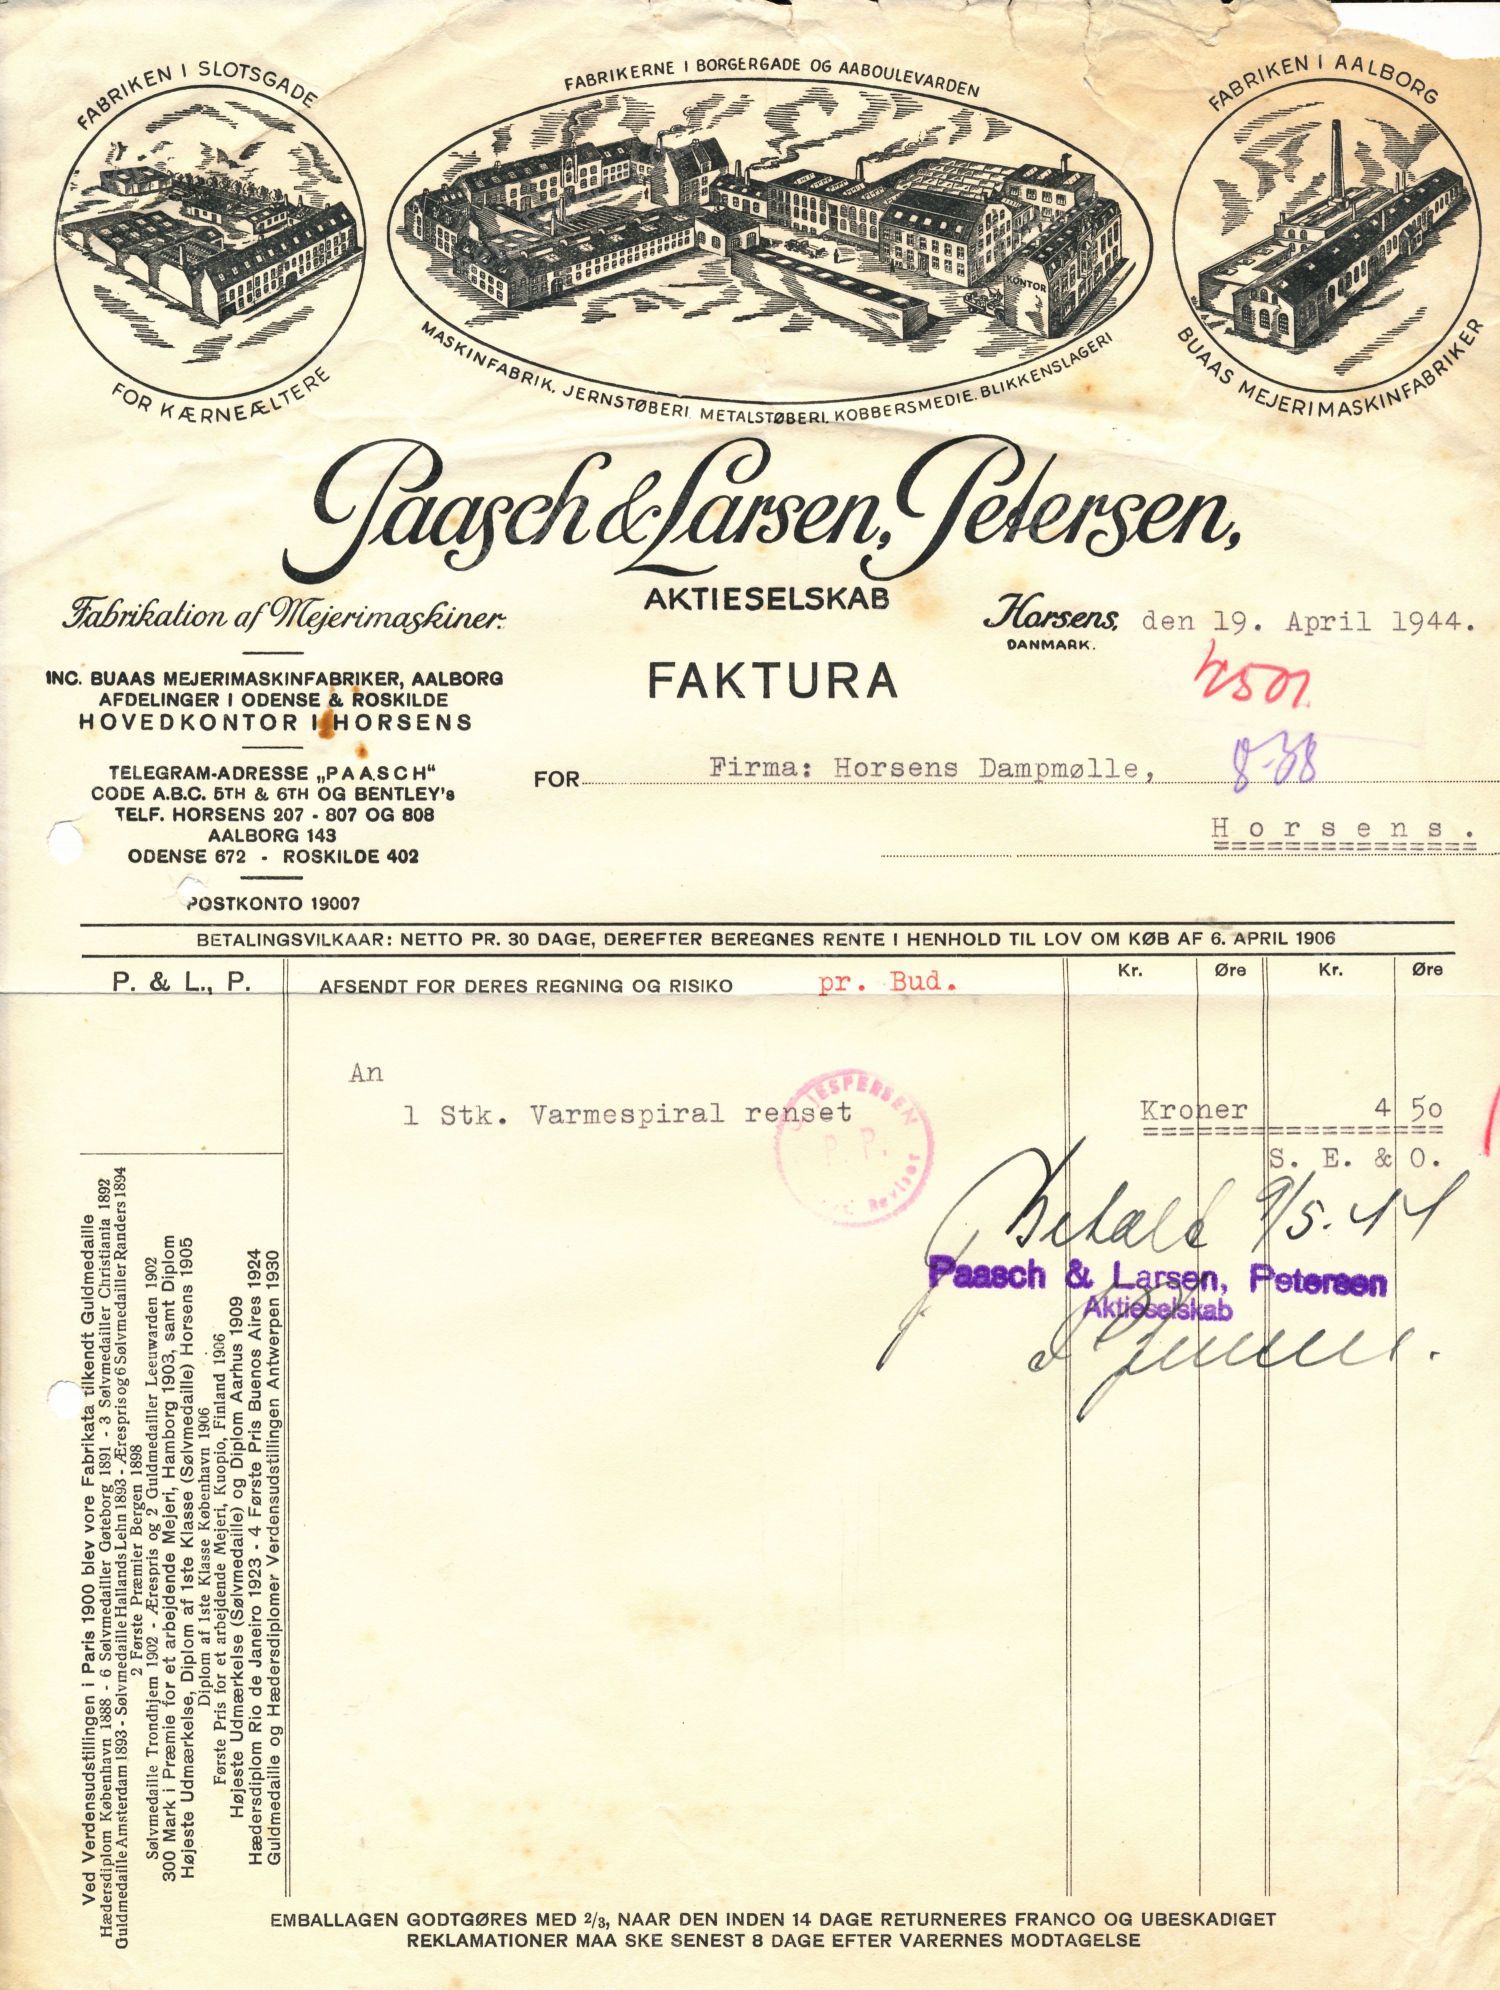 FABRIKEN I SLOTSGADE
FOR KÆRNEÆLTERE
FABRIKERNE I BORGERGADE OG AABOULEVARDEN
KONTOR
MASKINFABRIK, JERNSTØBERI, METALSTØBERI, KOBBERSMEDIE, BLIKKENSLAGERI
FABRIKEN I AALBORG
BUAAS MEJERIMASKINFABRIKER
Paasch & Larsen, Petersen,
AKTIESELSKAB
Fabrikation af Mejerimaskiner.
Horsens, den 19. April 1944.
DANMARK.
INC. BUAAS MEJERIMASKINFABRIKER, AALBORG
AFDELINGER I ODENSE & ROSKILDE
HOVEDKONTOR I HORSENS
FAKTURA
TELEGRAM-ADRESSE „PAASCH“
CODE A.B.C. 5TH & 6TH OG BENTLEY's
TELF. HORSENS 207 - 807 OG 808
AALBORG 143
ODENSE 672 - ROSKILDE 402
POSTKONTO 19007
FOR Firma: Horsens Dampmølle,
8-38
Horsens.
BETALINGSVILKAAR: NETTO PR. 30 DAGE, DEREFTER BEREGNES RENTE I HENHOLD TIL LOV OM KØB AF 6. APRIL 1906
P. & L., P. AFSENDT FOR DERES REGNING OG RISIKO pr. Bud. Kr. Øre Kr. Øre
An
1 Stk. Varmespiral renset Kroner 4 50
S. E. & O.
JESPERSEN
P. P.
Revisor
Betalt 9/5.44
Paasch & Larsen, Petersen
Aktieselskab
Ved Verdensudstillingen i Paris 1900 blev vore Fabrikata tilkendt Guldmedaille
Hædersdiplom København 1888 - 6 Sølvmedailler Gøteborg 1891 - 3 Sølvmedailler Christiania 1892
Guldmedaille Amsterdam 1893 - Sølvmedaille Hallands Lehn 1893 - Ærespris og 6 Sølvmedailler Randers 1894
2 Første Præmier Bergen 1898
Sølvmedaille Trondhjem 1902 - Ærespris og 2 Guldmedailler Leeuwarden 1902
300 Mark i Præmie for et arbejdende Mejeri, Hamborg 1903, samt Diplom
Højeste Udmærkelse, Diplom af 1ste Klasse (Sølvmedaille) Horsens 1905
Diplom af 1ste Klasse København 1906
Første Pris for et arbejdende Mejeri, Kuopio, Finland 1906
Højeste Udmærkelse (Sølvmedaille) og Diplom Aarhus 1909
Hædersdiplom Rio de Janeiro 1923 - 4 Første Pris Buenos Aires 1924
Guldmedaille og Hædersdiplomer Verdensudstillingen Antwerpen 1930
EMBALLAGEN GODTGØRES MED 2/3, NAAR DEN INDEN 14 DAGE RETURNERES FRANCO OG UBESKADIGET
REKLAMATIONER MAA SKE SENEST 8 DAGE EFTER VARERNES MODTAGELSE